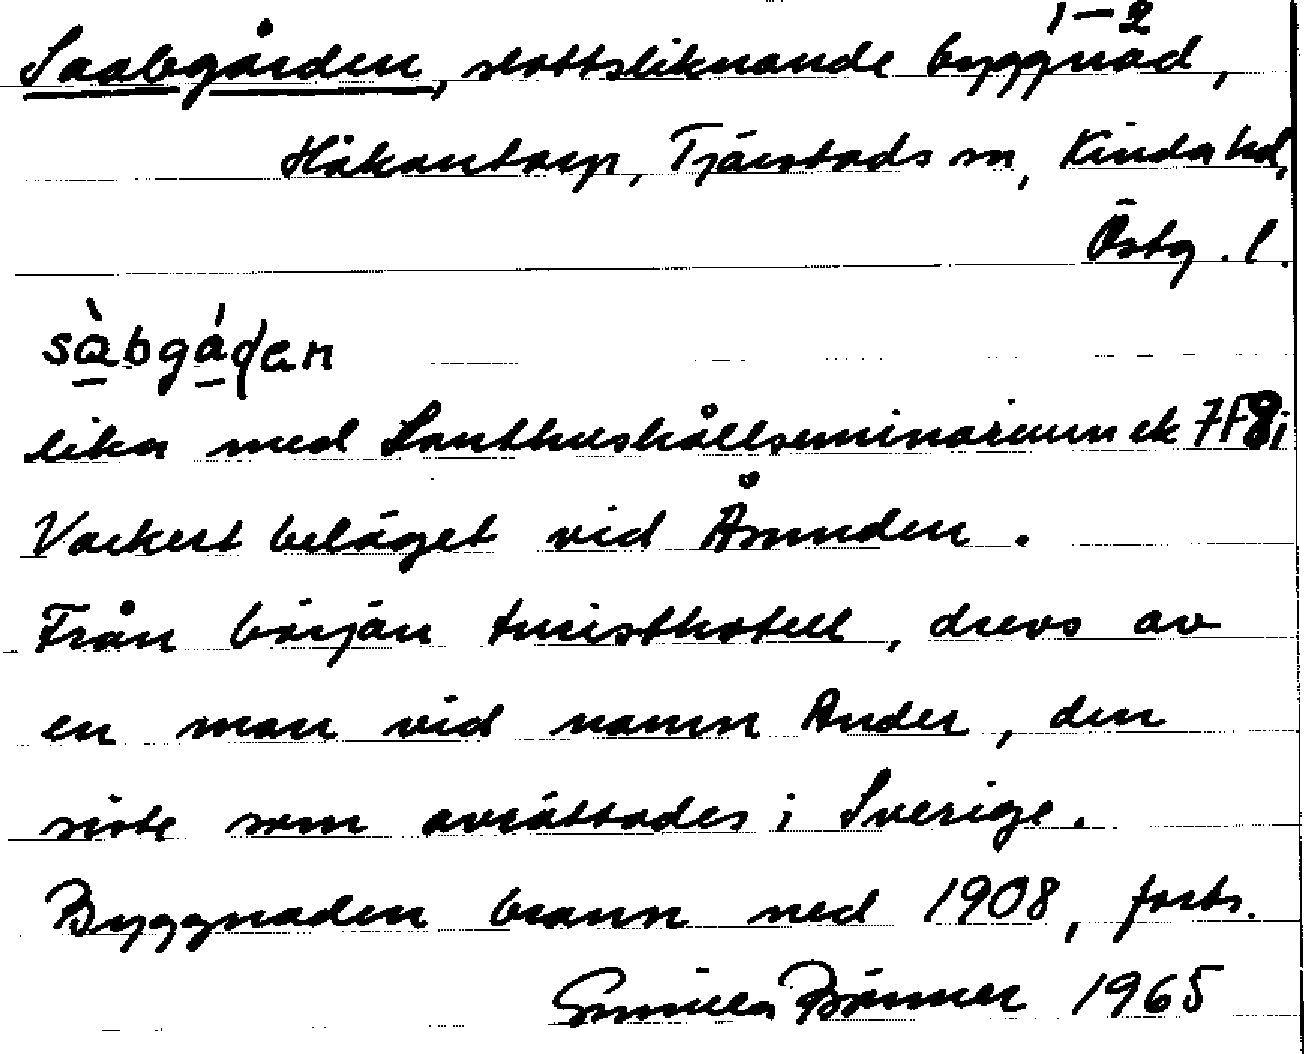 1-2
Saabgården, slottsliknande byggnad,
Håkantorp, Tjärstads sn, Kinda hd,
Östg. l.
sàbgáden
lika med Lanthushållseminarium ek 7F8i
Vackert beläget vid Åsunden.
Från början turisthotell, drevs av
en man vid namn Ander, den
siste som avrättades i Sverige.
Byggnaden brann ned 1908, forts.
Gunilla Brönner 1965